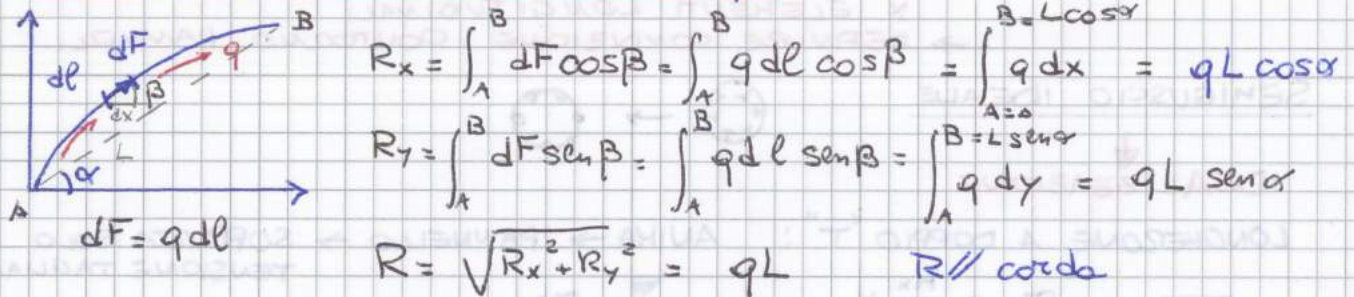 B
dF
q
dl
β
dx
L
α
A
dF = q dl
Rx = ∫_A^B dF cosβ = ∫_A^B q dl cosβ = ∫_{A=0}^{B=L cosα} q dx = qL cosα
Ry = ∫_A^B dF senβ = ∫_A^B q dl senβ = ∫_A^{B=L senα} q dy = qL senα
R = √(Rx² + Ry²) = qL R // corda